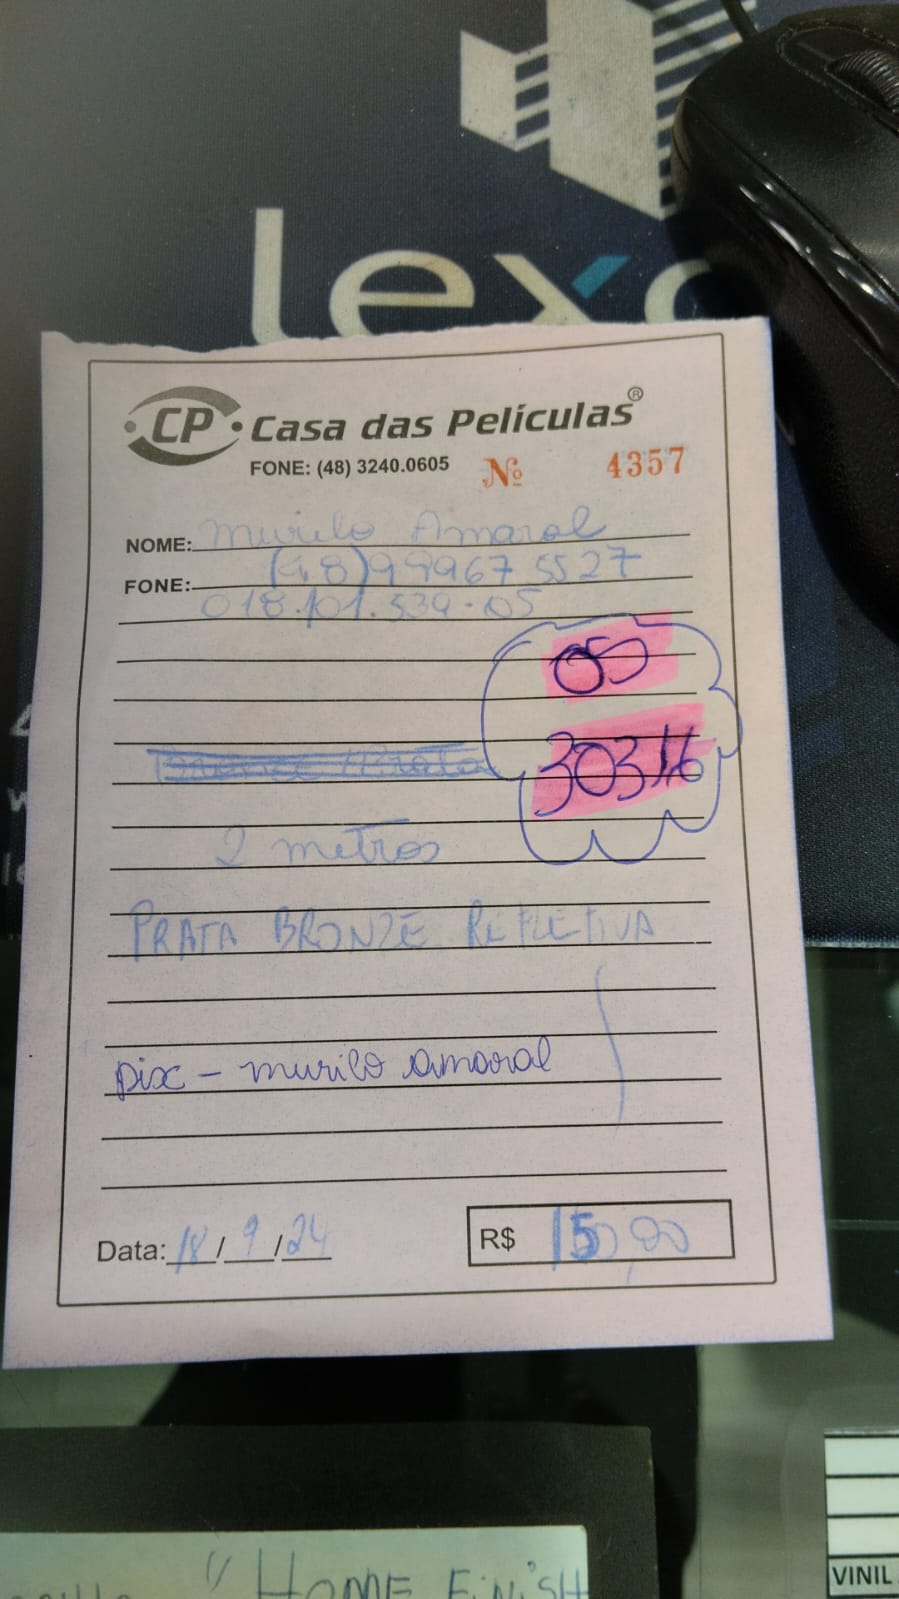 lexc
CP Casa das Películas®
FONE: (48) 3240.0605 Nº 4357
NOME: Murilo Amaral
FONE: (48)999675527
018.101.539-05
OS
30316
2 metros
PRATA BRONZE REFLETIVA
pix - murilo amaral
Data: 18/9/24 R$ 150,00
"HOME FINISH
VINIL